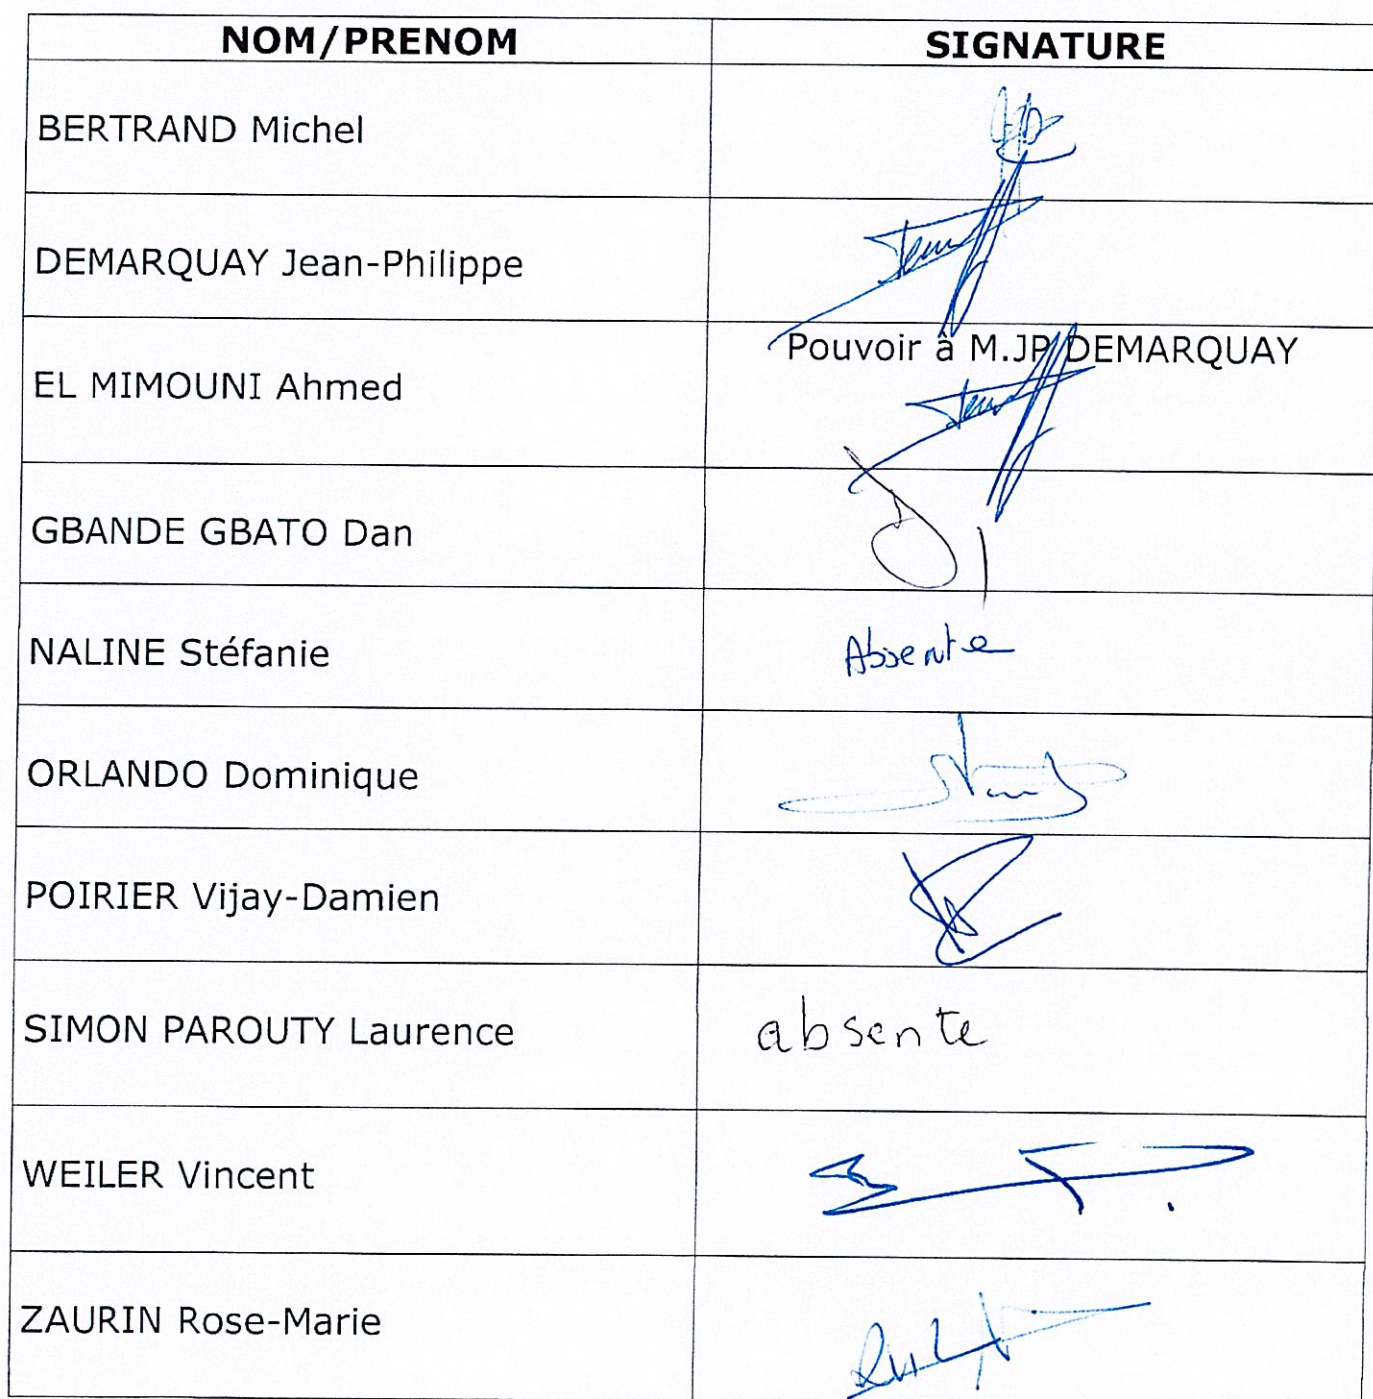 NOM/PRENOM SIGNATURE
BERTRAND Michel
DEMARQUAY Jean-Philippe
Pouvoir à M.JP DEMARQUAY
EL MIMOUNI Ahmed
GBANDE GBATO Dan
NALINE Stéfanie Absente
ORLANDO Dominique
POIRIER Vijay-Damien
SIMON PAROUTY Laurence absente
WEILER Vincent
ZAURIN Rose-Marie